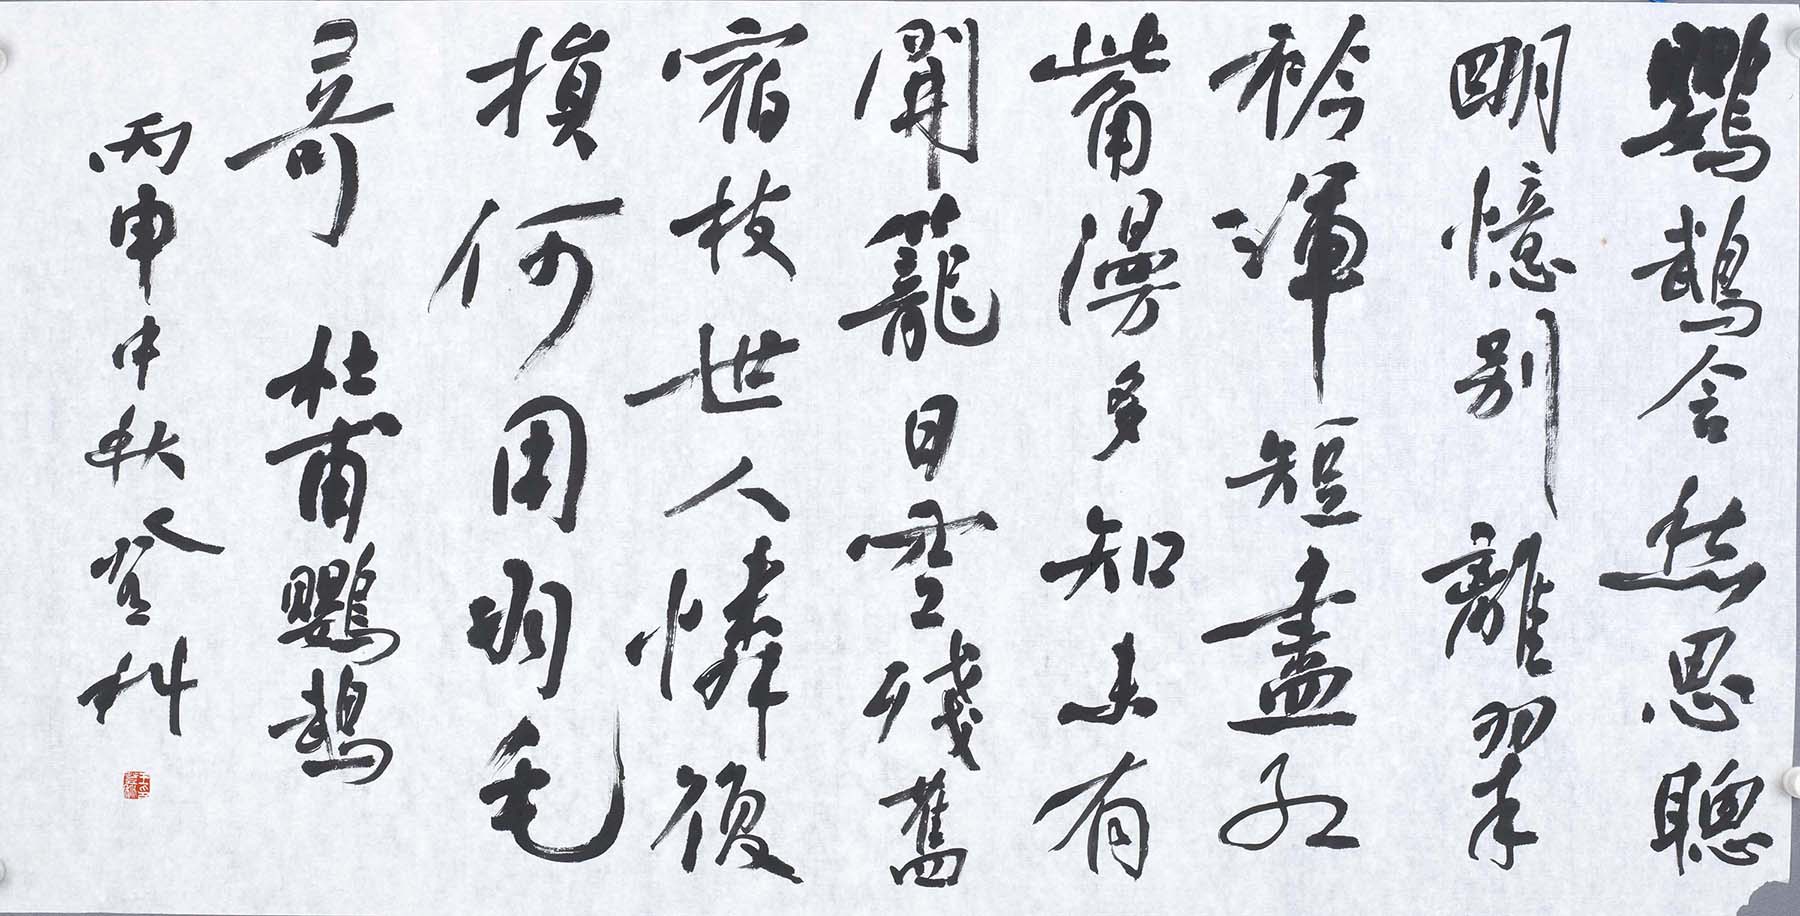 鸚鵡含愁思聰
明憶别離翠
衿渾短盡紅
觜漫多知未有
開籠日空殘舊
宿枝世人憐復
損何用羽毛
奇 杜甫鸚鵡
丙申中秋登科